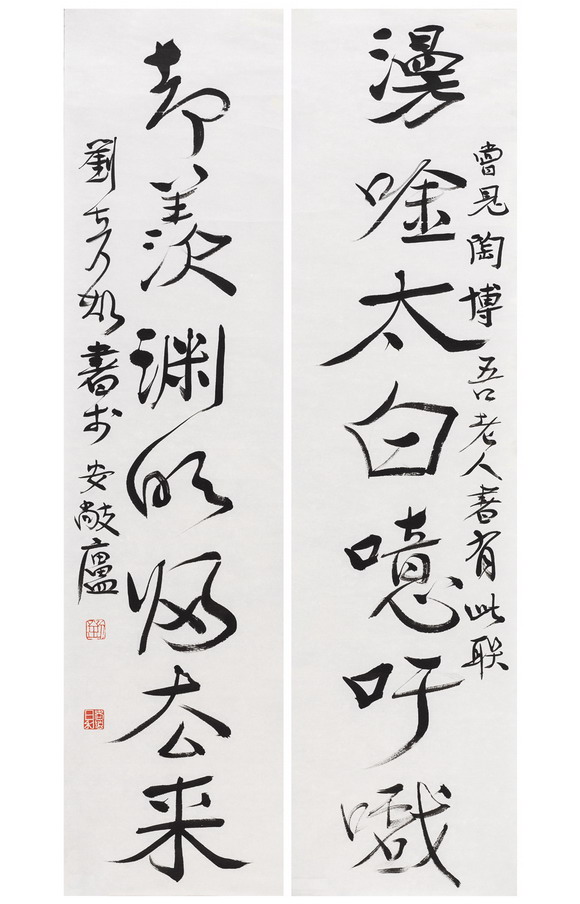 曾見陶博吾老人書有此联
漫唫太白噫吁嚱
却羡渊明归去来
劉 書於安敞廬